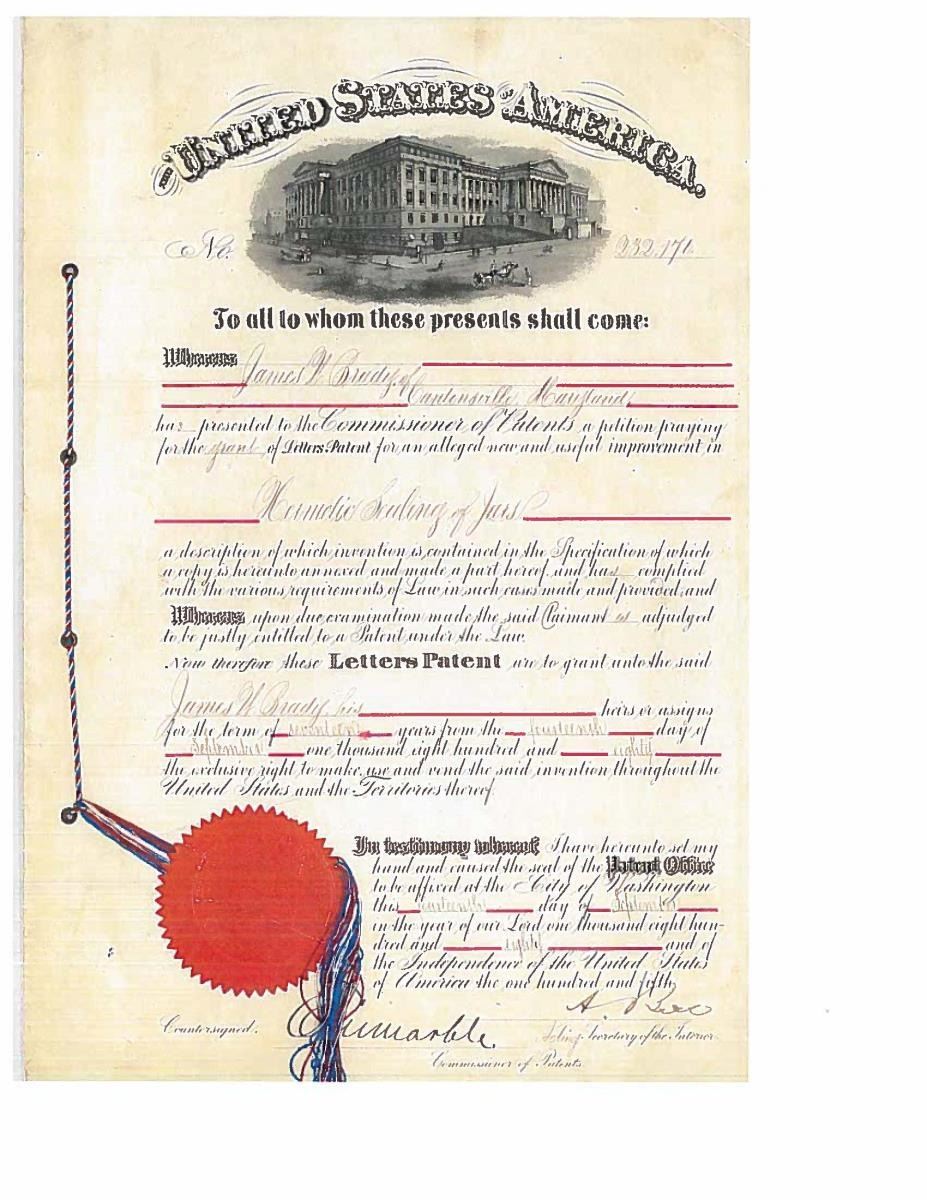 THE UNITED STATES OF AMERICA.
No. 232,176
To all to whom these presents shall come:
Whereas James W. Brady, of
Cantonsville, Maryland,
has presented to the Commissioner of Patents a petition praying
for the grant of Letters Patent for an alleged new and useful improvement in
Hermetic Sealing of Jars
a description of which invention is contained in the Specification of which
a copy is hereunto annexed and made a part hereof, and has complied
with the various requirements of Law in such cases made and provided, and
Whereas upon due examination made the said Claimant is adjudged
to be justly entitled to a Patent under the Law.
Now therefore these Letters Patent are to grant unto the said
James W. Brady, his heirs or assigns
for the term of seventeen years from the fourteenth day of
September one thousand eight hundred and eighty
the exclusive right to make, use and vend the said invention throughout the
United States and the Territories thereof.
In testimony whereof I have hereunto set my
hand and caused the seal of the Patent Office
to be affixed at the City of Washington
this fourteenth day of September
in the year of our Lord one thousand eight hun-
dred and eighty and of
the Independence of the United States
of America the one hundred and fifth.
A. Bell
Countersigned. Marble. Acting Secretary of the Interior.
Commissioner of Patents.